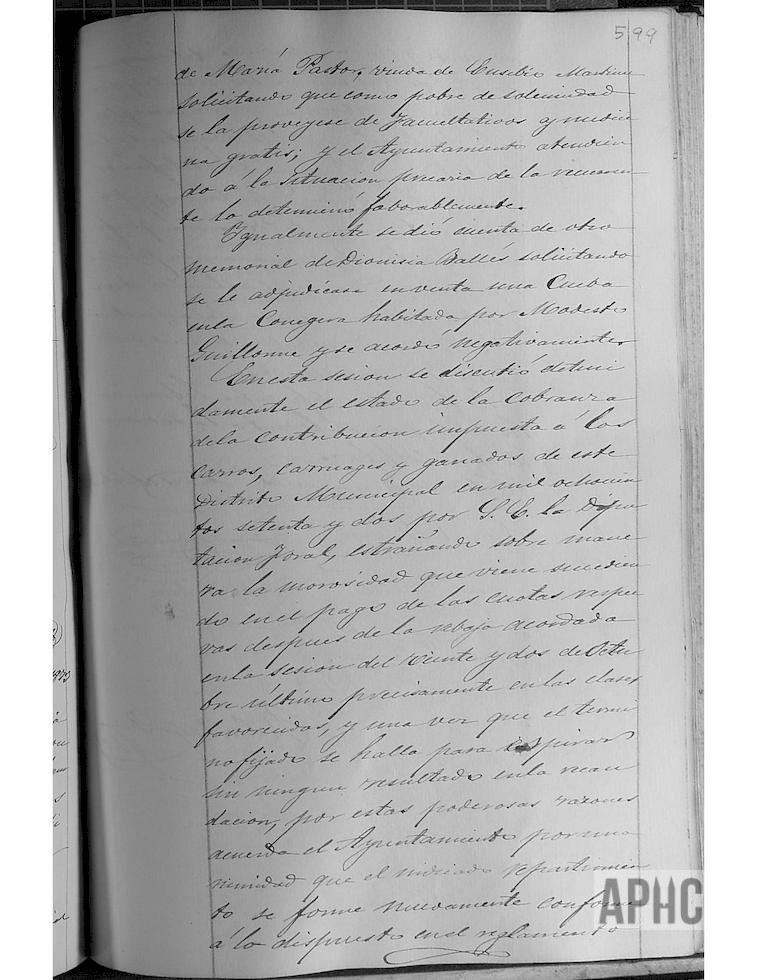 599
de María Pastor, viuda de Eusebio Martinez
solicitando que como pobre de solemnidad
se la proveyese de Facultativos y medici
na gratis; y el Ayuntamiento atendien
do á la situacion precaria de la recurren
te lo determinó faborablemente.
Igualmente se dió cuenta de otro
memorial de Dionisia Ballés solicitando
se le adjudicase en venta una Cueba
en la Conegera habitada por Modesto
Guillorme y se acordó negativamente
En esta sesion se discutió deteni
damente el estado de la cobranza
de la contribucion impuesta á los
carros, carruages y ganados de este
Distrito Municipal en mil ochocien
tos setenta y dos por S. E. la Dipu
tacion Foral, estrañando sobre mane
ra la morosidad que viene sucedien
do en el pago de las cuotas respec
vas despues de la rebaja acordada
en la sesion del veinte y dos de Octu
bre último precisamente en las clases
favorecidas, y una vez que el termi
no fijado se halla para espirar
sin ningun resultado en la recau
dacion, por estas poderosas razones
acuerda el Ayuntamiento por una
nimidad que el indicado repartimien
to se forme nuevamente conforme
á lo dispuesto en el reglamento
APHC